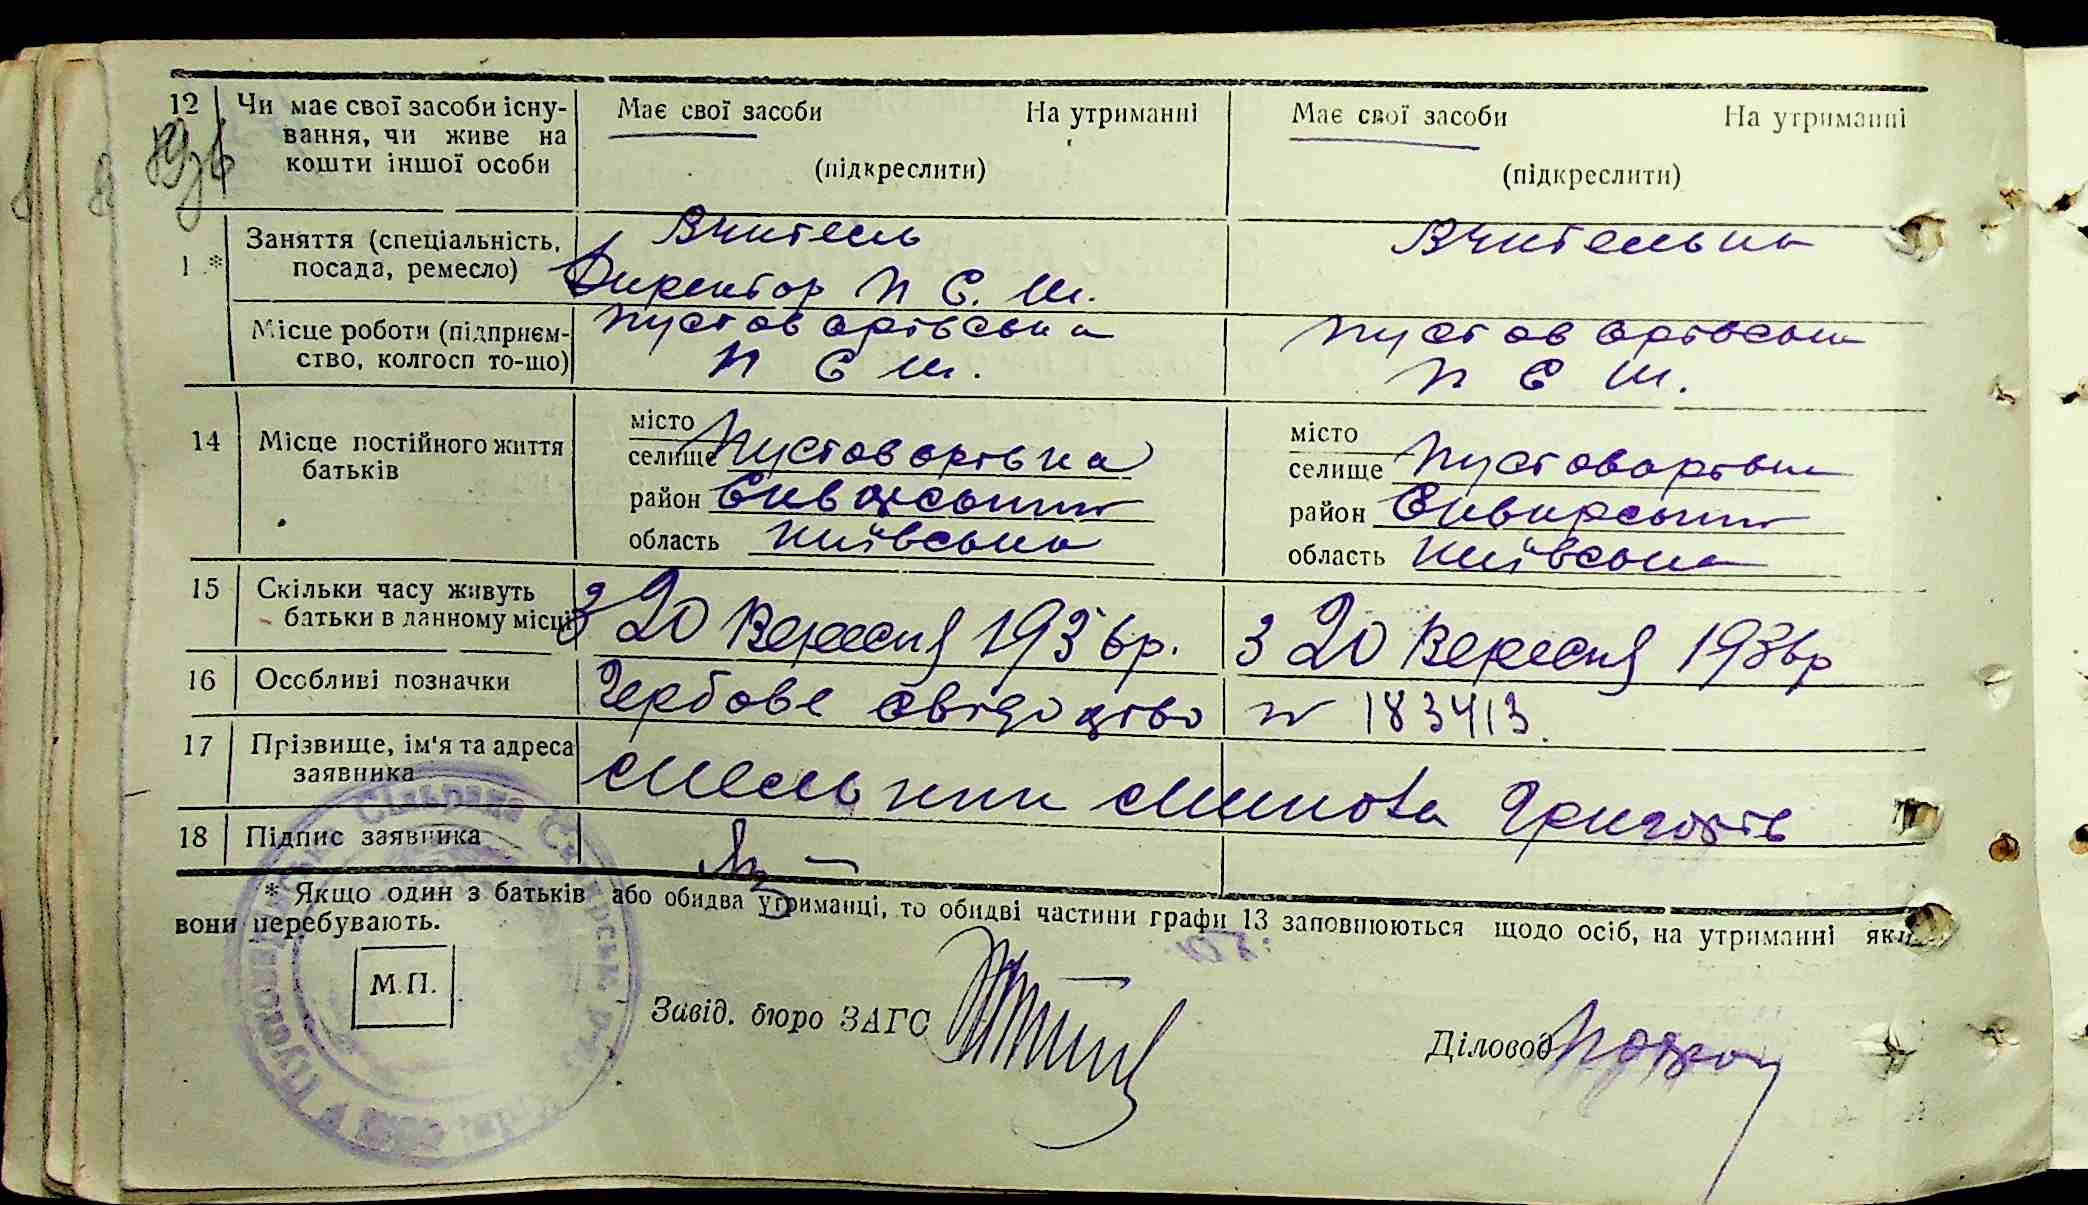 12 Чи має свої засоби існу- Має свої засоби На утриманні Має свої засоби На утриманні
вання, чи живе на
кошти іншої особи (підкреслити) (підкреслити)
1 * Заняття (спеціальність, Вчитель Вчителька
посада, ремесло) Директор П С. Ш.
Місце роботи (підприєм- Пустоварівська Пустоварівська
ство, колгосп то-що) П С Ш. П С Ш.
14 Місце постійного життя місто місто
батьків селище Пустоварівка селище Пустоварівка
район Сквирський район Сквирський
область Київська область Київська
15 Скільки часу живуть
батьки в данному місці З 20 Вересня 1936р. З 20 Вересня 1936р
16 Особливі позначки Гербове свідоцтво № 183413.
17 Прізвище, ім'я та адреса Мельник Микола Григорів
заявника
18 Підпис заявника
* Якщо один з батьків або обидва утриманці, то обидві частини графи 13 заповнюються щодо осіб, на утриманні яких
вони перебувають.
М.П.
Завід. бюро ЗАГС
Діловод